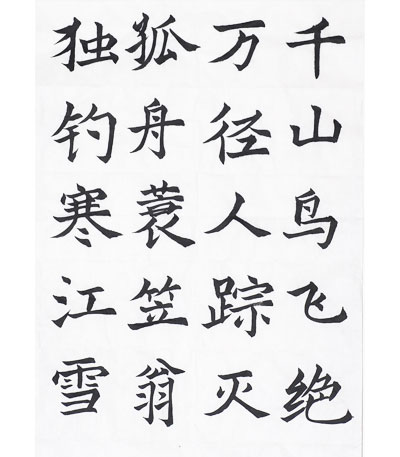 千山鸟飞绝
万径人踪灭
狐舟蓑笠翁
独钓寒江雪